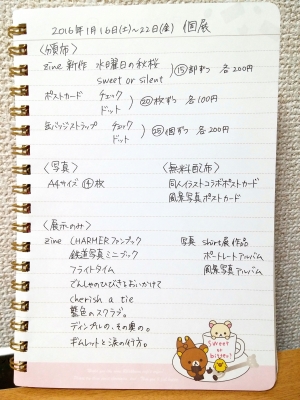 2016年1月16日(土)〜22日(金) 個展
〈頒布〉
zine 新作 水曜日の秋桜
sweet or silent
⑮部ずつ 各200円
ポストカード チェック
ドット
⑳枚ずつ 各100円
缶バッジストラップ チェック
ドット
㉕個ずつ 各200円
〈写真〉
A4サイズ ⑭枚
〈無料配布〉
同人イラストコラボポストカード
風景写真ポストカード
〈展示のみ〉
zine CHARMERファンブック
鉄道写真ミニブック
フライトタイム
でんしゃのひびきをおいかけて
cherish a tie
藍色のスクラブ。
ディンプルの、その奥の。
ギムレットと涙の行方。
写真 short展作品
ポートレートアルバム
風景写真アルバム
Sweet
or
bitter?